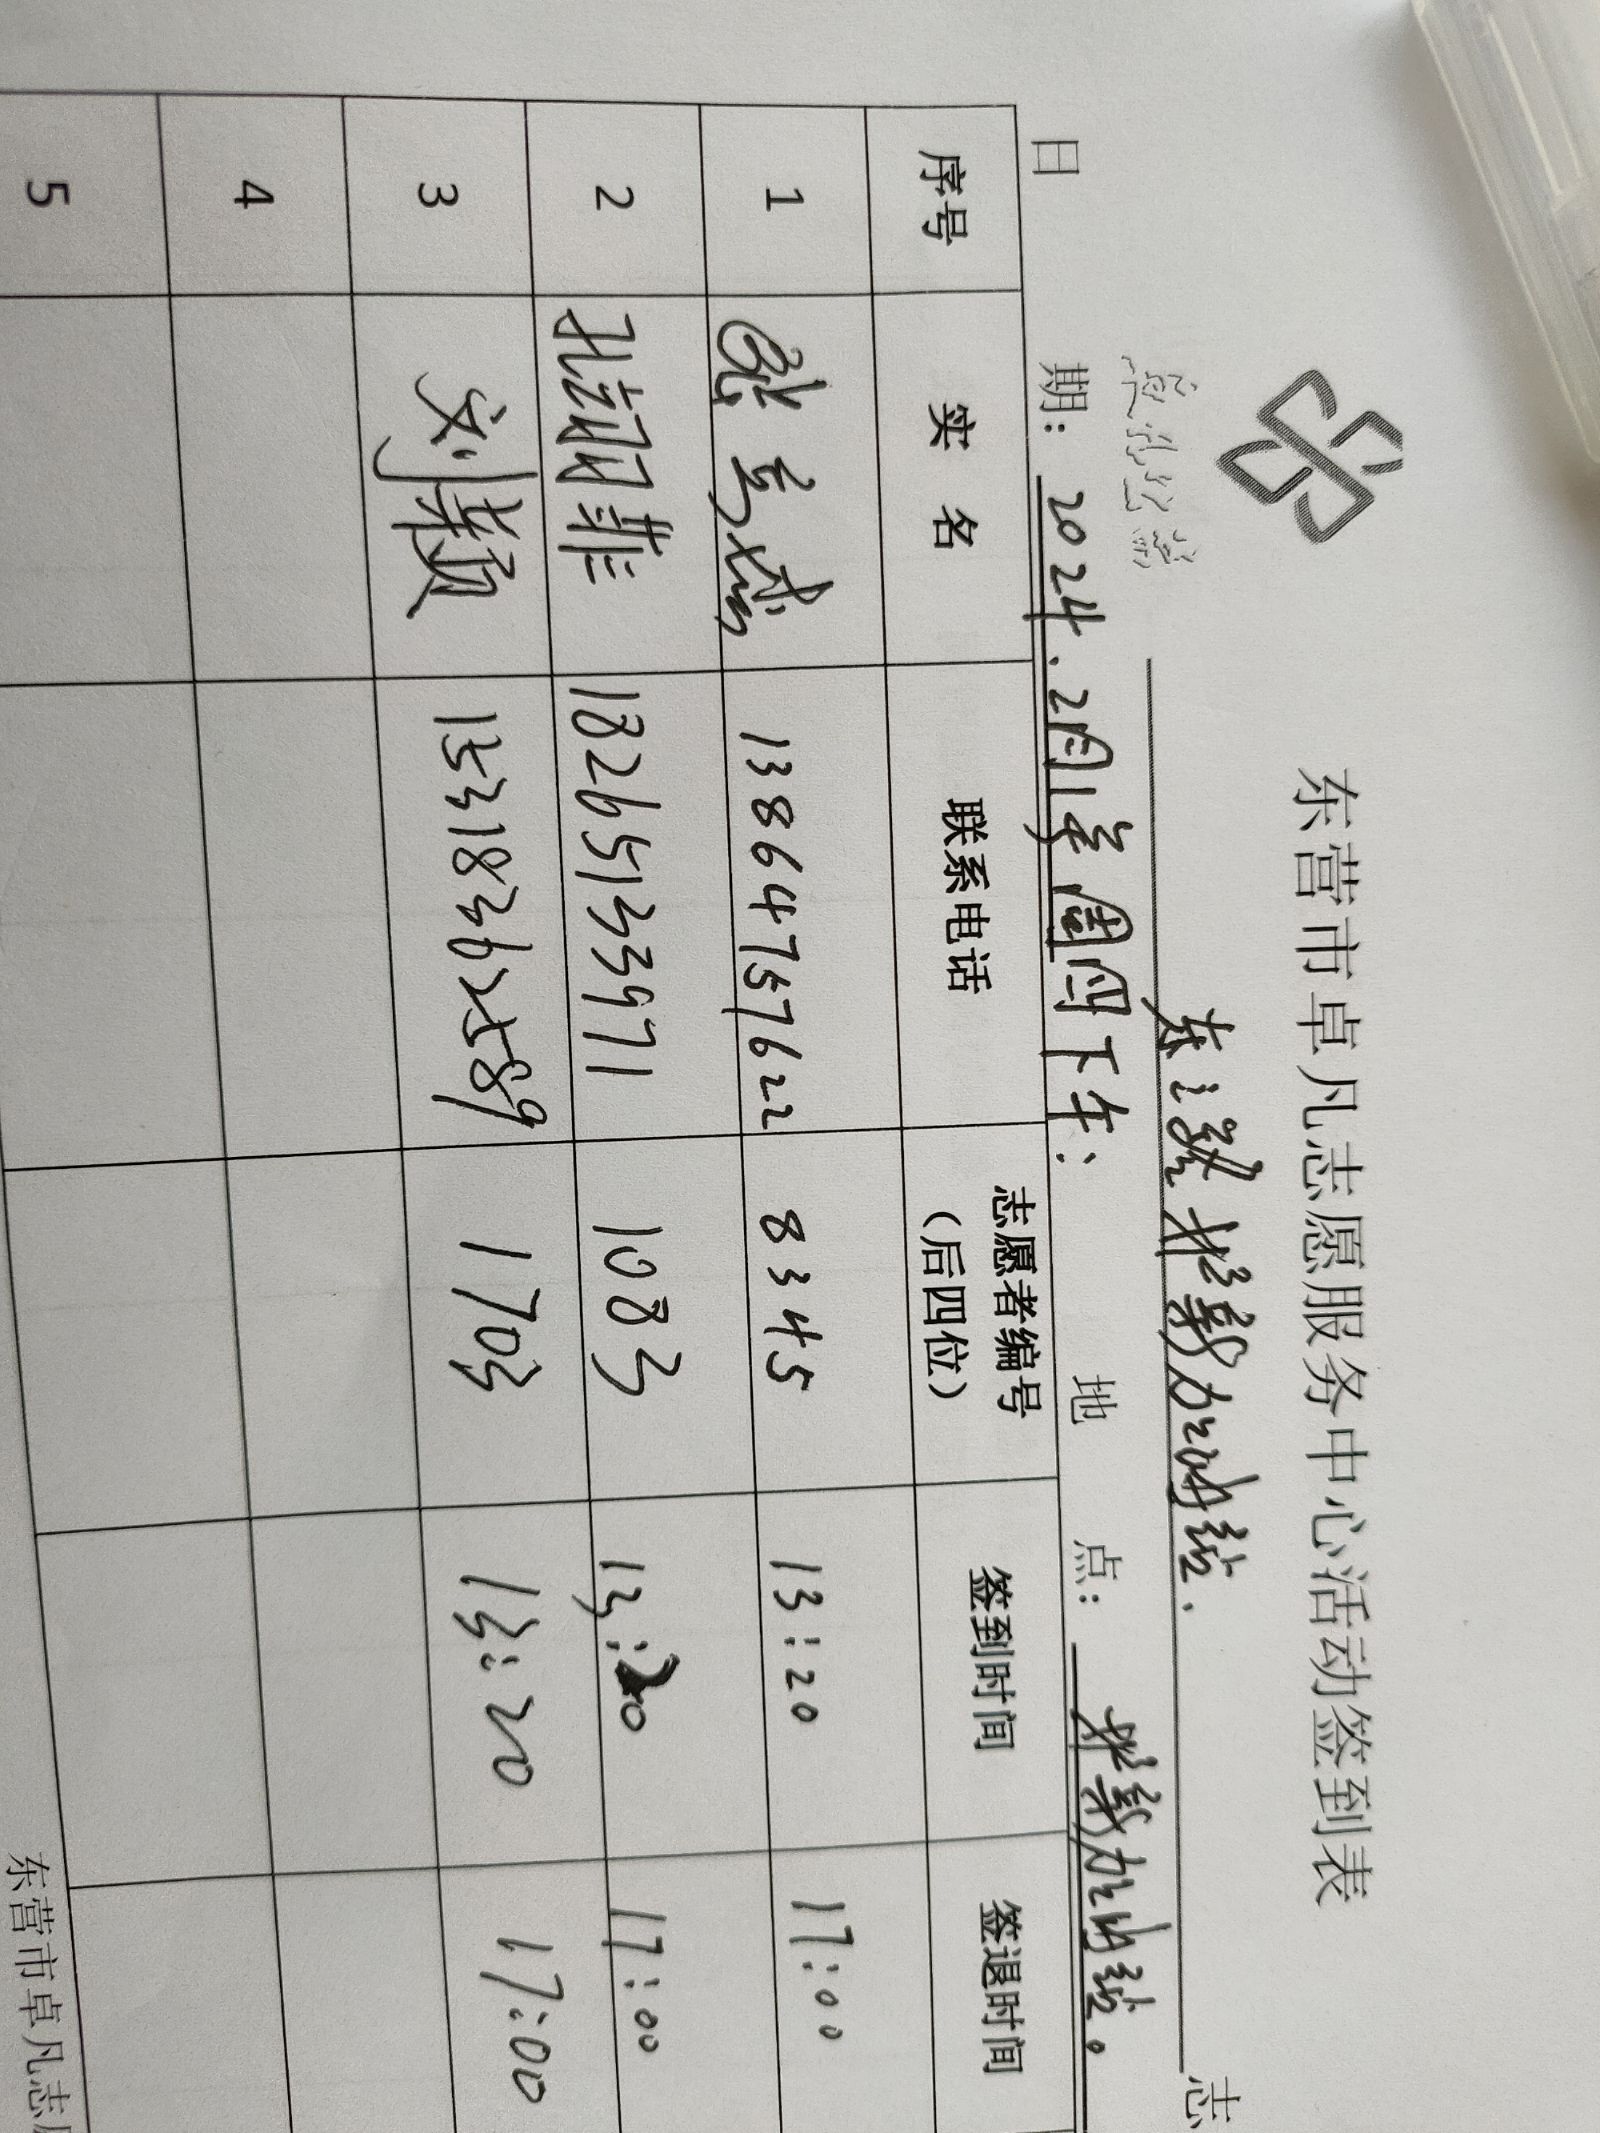 东营市卓凡志愿服务中心活动签到表
东三路 加油站. 志
日 期: 2024.2月1号 周四下午: 地 点: 加油站。
序号 实 名 联系电话 志愿者编号（后四位） 签到时间 签退时间
1 张 13864757622 8345 13:20 17:00
2 孔丽菲 18265133971 1083 13:20 17:00
3 刘 15318362589 1703 13:20 17:00
4
5
东营市卓凡志